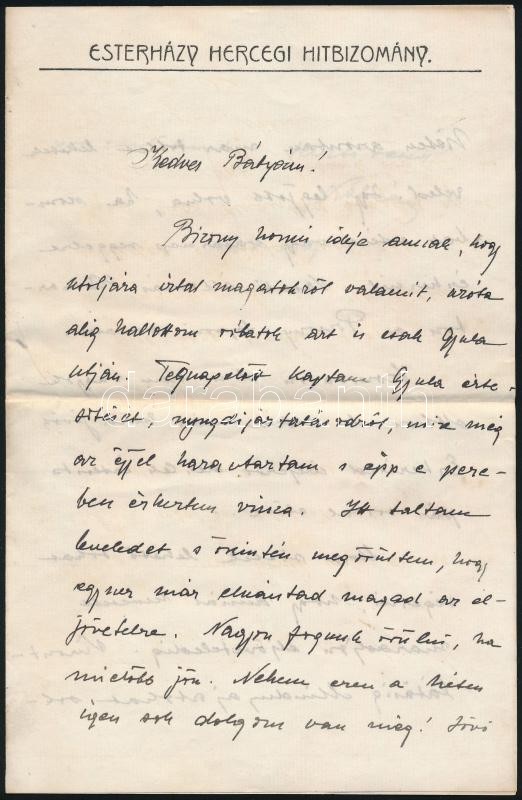 ESTERHÁZY HERCEGI HITBIZOMÁNY.
Kedves Bátyám!
Bizony hosszú ideje annak, hogy
utoljára írtál magatokról valamit, azóta
alig hallottam rólatok azt is csak Gyula
útján. Tegnapelőtt kaptam Gyula érte-
sítését, nyugdíjaztatásodról, mire még
az éjjel hazautaztam s épp e perc-
ben érkeztem vissza. Itt találtam
leveledet s őszintén megörültem, hogy
egyszer már elszántad magad az el-
jövetelre. Nagyon fogunk örülni, ha
mielőbb jön. Nekem ezen a héten
igen sok dolgom van még! Jövő